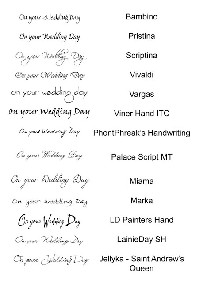 On your Wedding Day Bambino
On your Wedding Day Pristina
On your Wedding Day Scriptina
On your Wedding Day Vivaldi
on your wedding day Vargas
on your Wedding Day Viner Hand ITC
On your Wedding Day PhontPhreak's Handwriting
On your Wedding Day Palace Script MT
On your Wedding Day Miama
On your Wedding Day Marka
On your Wedding Day LD Painters Hand
On your Wedding Day LainieDay SH
On your Wedding Day Jellyka - Saint Andrew's
Queen